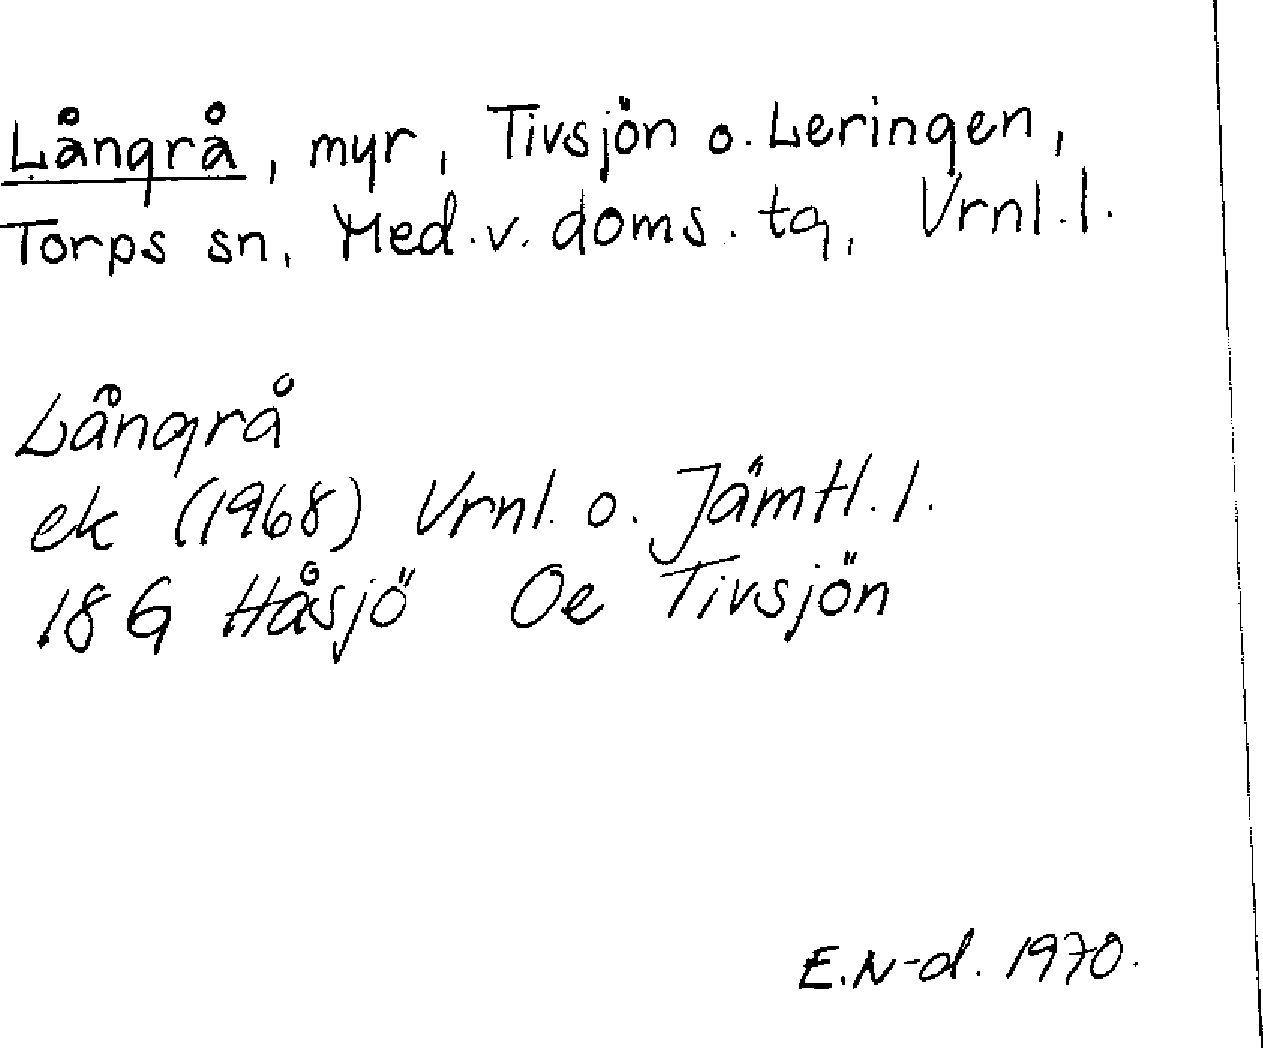 Långrå, myr, Tivsjön o. Leringen,
Torps sn, Med.v. doms. tg, Vrnl.l.
Långrå
ek (1968) Vrnl. o. Jämtl.l.
18G Håsjö Oe Tivsjön
E.N-d. 1970.